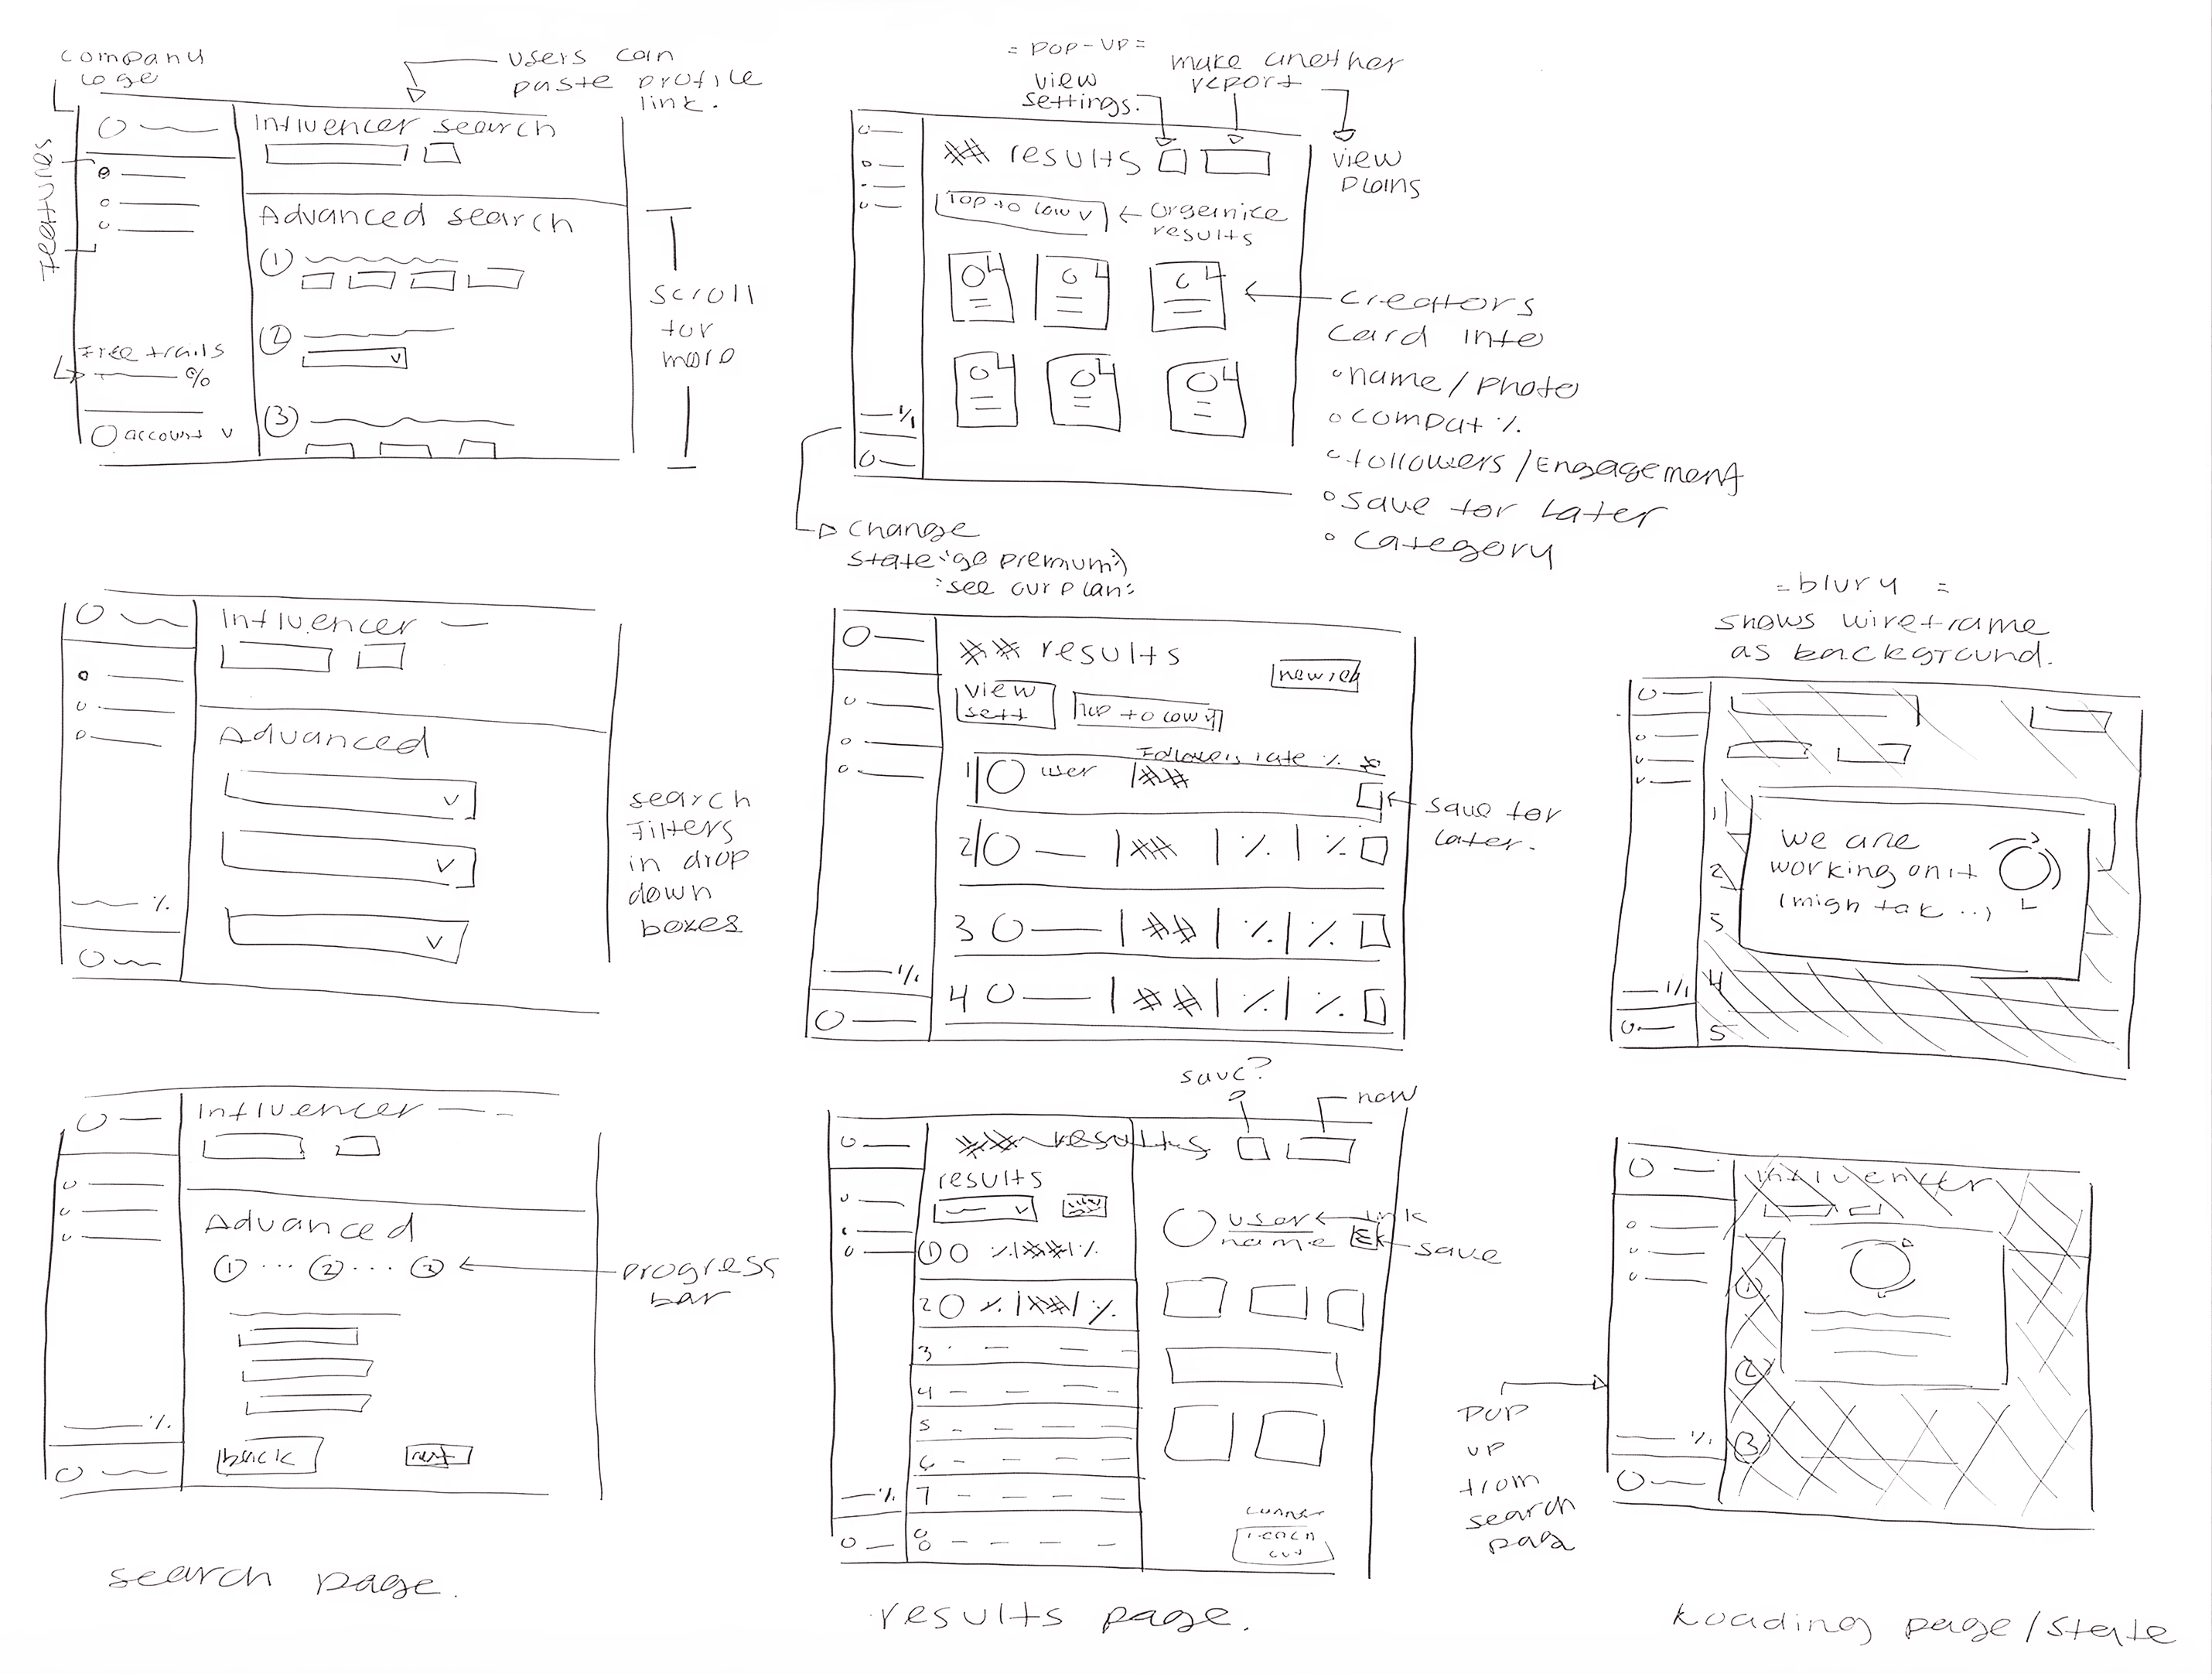 company
logo
users can
paste profile
link.
Features
Influencer search
Advanced search
1
2
3
Free trails
%
account v
scroll
for
more
= POP-UP =
view
settings.
make another
report
view
plans
## results
Top to low v
← organize
results
creators
card info
name / photo
compat %
followers / Engagement
save for later
category
%
change
state "go premium"
"see our plan"
Influencer
Advanced
%
search
Filters
in drop
down
boxes
## results
view
sett
new rep
Top to low v
Followers rate %
1
user
##
save for
later.
2 ## % %
3 ## % %
4 ## % %
%
= blury =
shows wireframe
as background.
we are
working on it
(migh tak ..)
1
2
3
4
5
%
Influencer
Advanced
1 ... 2 ... 3
progress
bar
back
next
%
search page.
save?
new
## results
results
user
name
link
save
1 % ## %
2 % ## %
3
4
5
6
7
8
%
reach
out
results page.
Influencer
1
2
3
%
POP
up
from
search
page
Loading page / State